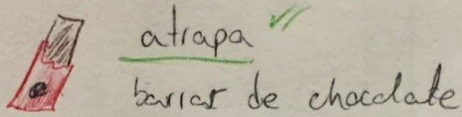 atrapa
barras de chocolate